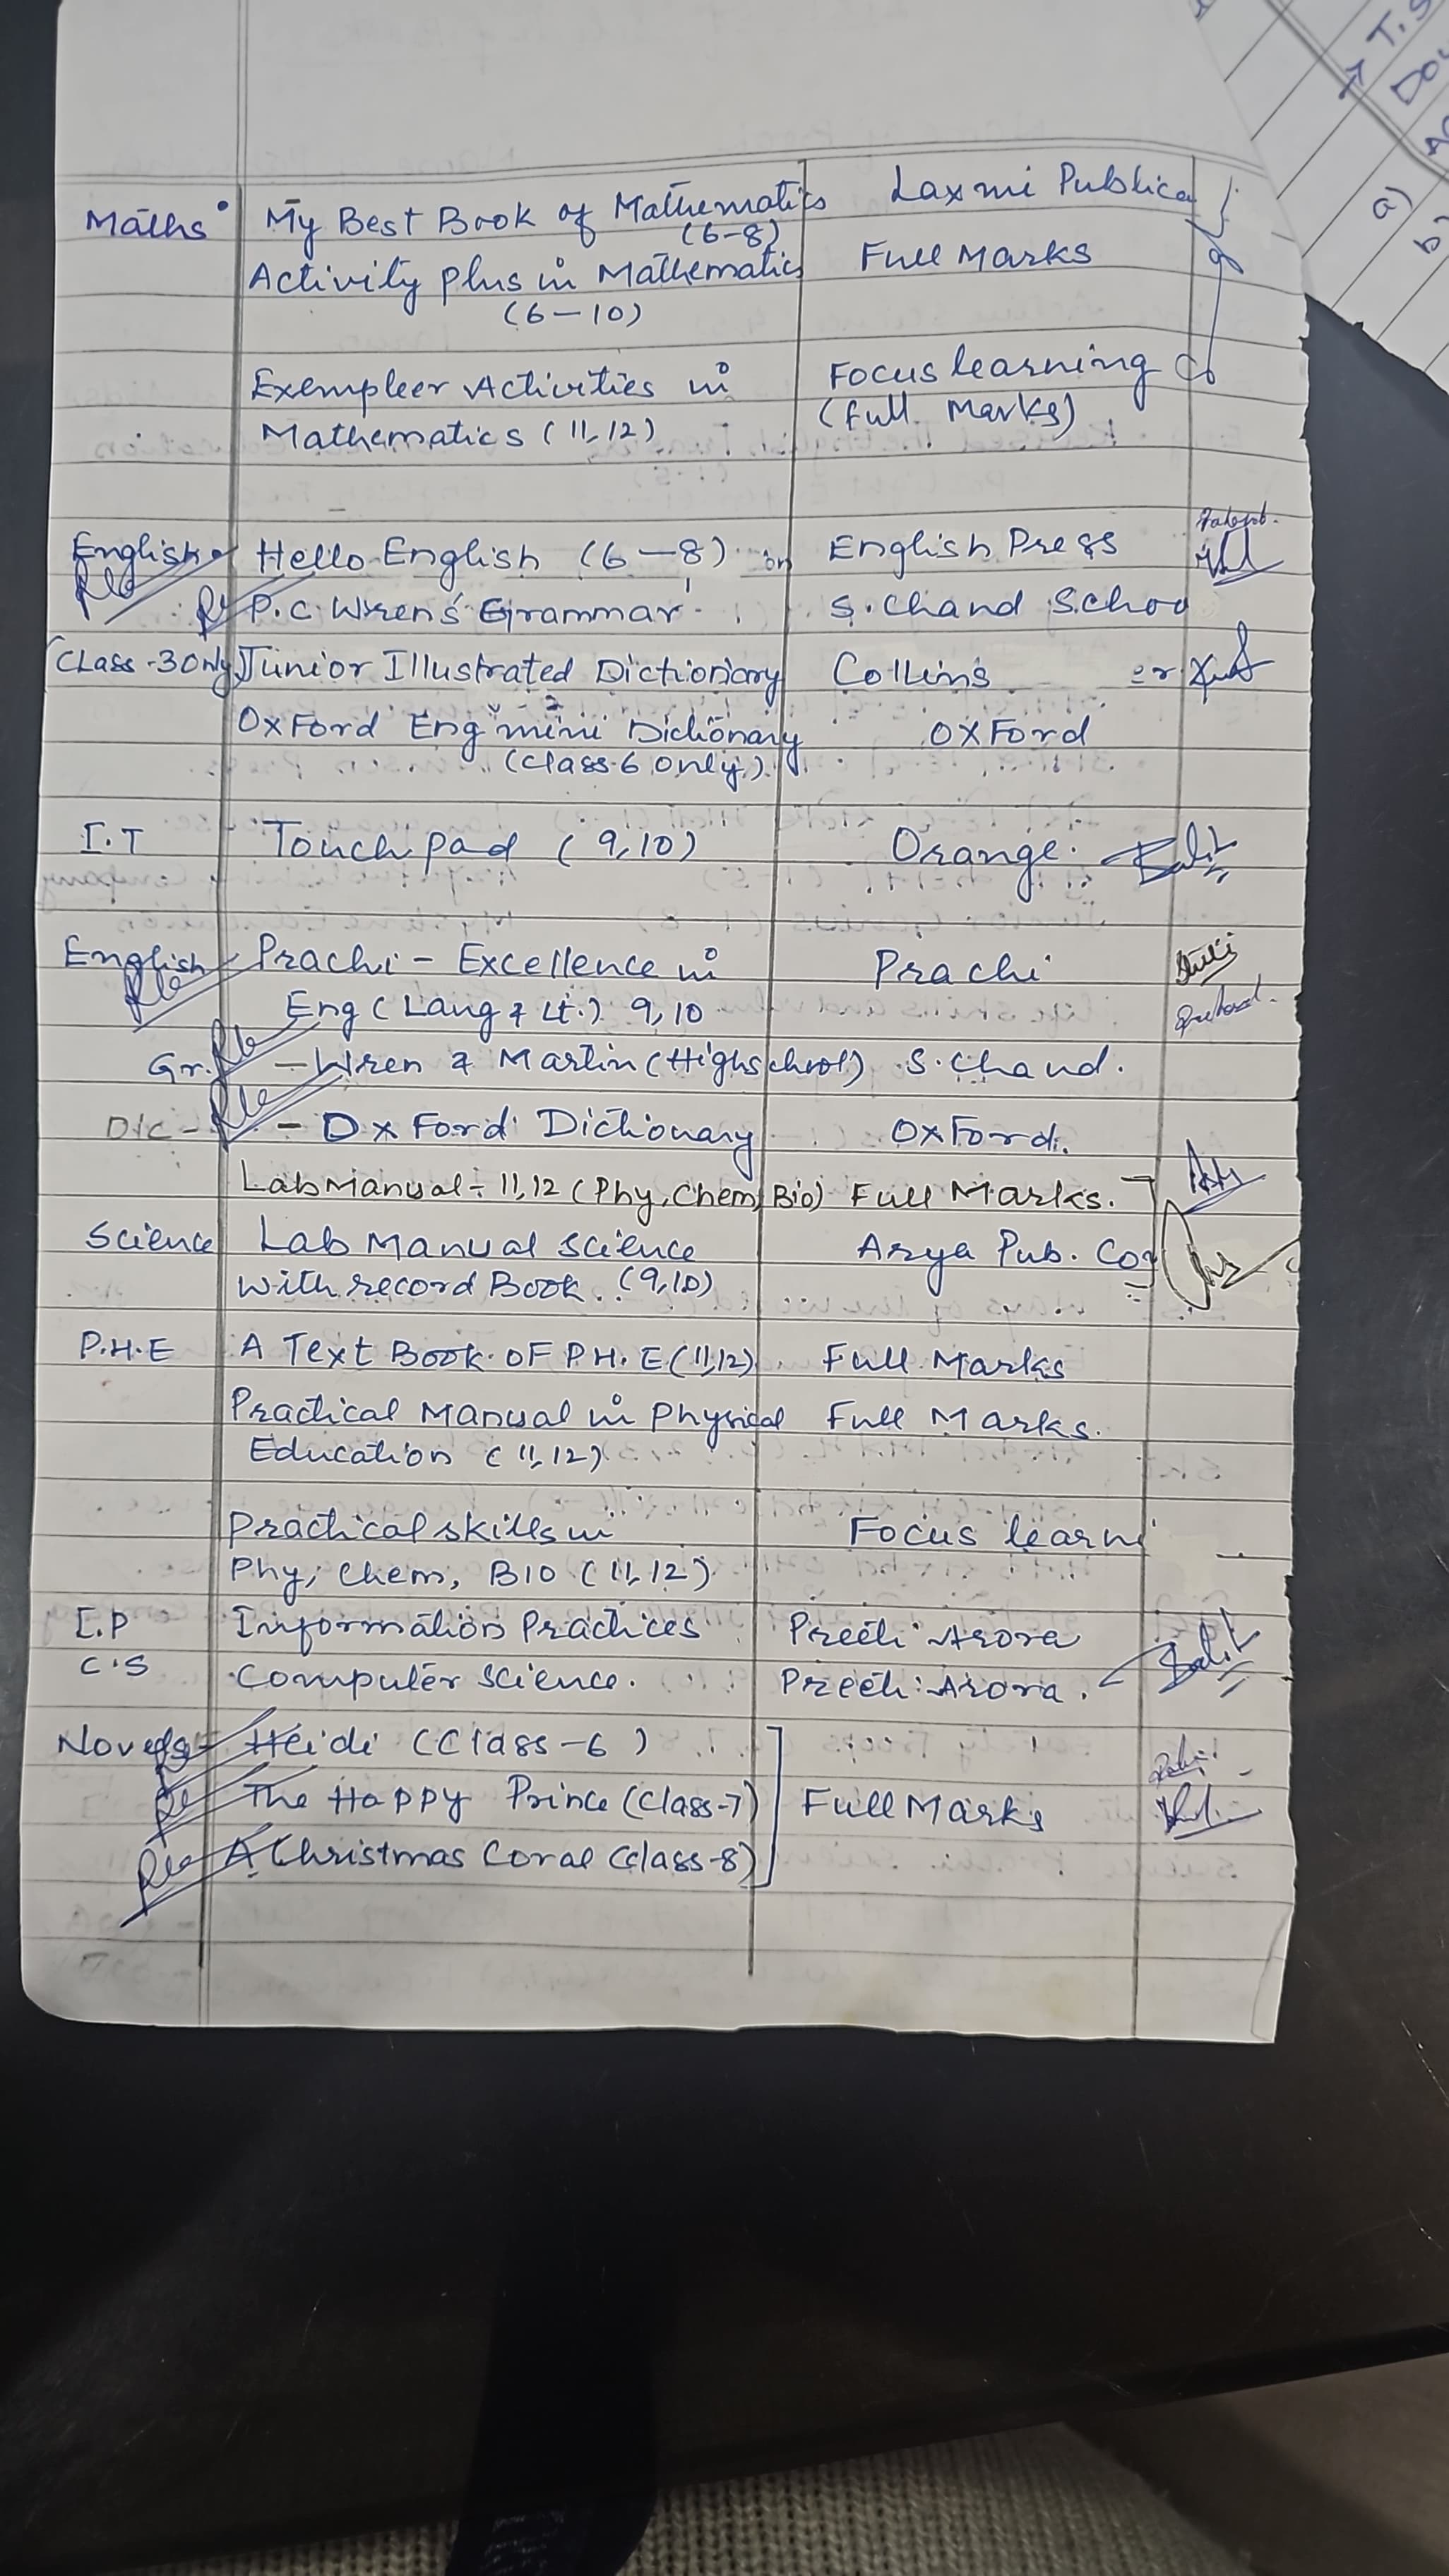 Maths My Best Book of Mathematics Laxmi Publica
(6-8)
Activity plus in Mathematics Full Marks
(6-10)
Exempleer Activities in Focus learning Co
Mathematics (11,12) (full Marks)
English Hello English (6-8) or English Press
P.C. Wren's Grammar S. Chand Schoo
(Class-3 Only) Junior Illustrated Dictionary Collins or
OxFord Eng mini Dictionary OxFord
(Class-6 only)
I.T Touch pad (9,10) Orange.
English Prachi - Excellence in Prachi
Eng (Lang & Lt.) 9,10
Gr. - Wren & Martin (High school) S. Chand.
Dic - - OxFord Dictionary OxFord.
Lab Manual - 11,12 (Phy, Chem, Bio) Full Marks.
Science Lab Manual Science Arya Pub. Co
With record Book. (9,10)
P.H.E A Text Book OF P.H.E (11,12) Full Marks
Practical Manual in Physical Full Marks.
Education (11,12)
Practical skills in Focus learni
Phy, Chem, BIO (11,12)
I.P Information Practices Preeti Arora
C.S Computer Science. Preeti Arora.
Novels - Heidi (Class-6)
The Happy Prince (Class-7) Full Marks
A Christmas Coral (Class-8)
T.S
Dou
a)
b)